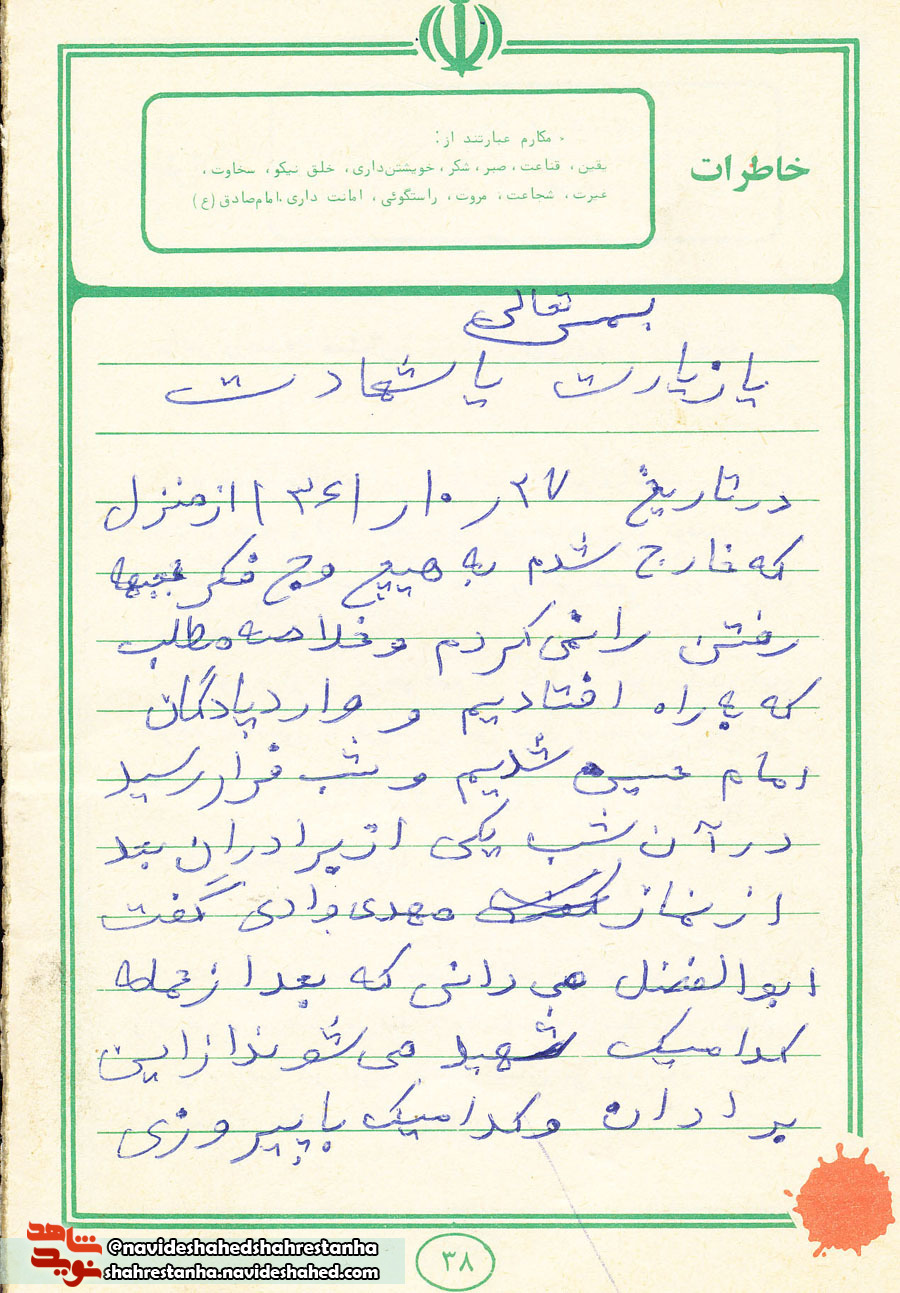 خاطرات
مکارم عبارتند از:
یقین، قناعت، صبر، شکر، خویشتن‌داری، خلق نیکو، سخاوت،
غیرت، شجاعت، مروت، راستگوئی، امانت داری.امام صادق (ع)
بسمه تعالی
یا زیارت یا شهادت
در تاریخ ۲۷ر۱۰ر۱۳۶۱ از منزل
که خارج شدم به هیچ وجه فکر جبهه
رفتن را نمی‌کردم و خلاصه مطلب
که به راه افتادیم و وارد پادگان
امام حسین شدیم و شب فرا رسید
در آن شب یکی از برادران بعد
از نماز مهدی جوادی گفت
ابوالفضل می دانی که بعد از حمله
کدامیک شهید می شوند از این
برادران و کدامیک با پیروزی
شاهد
نوید
©navideshahedshahrestanha
shahrestanha.navideshahed.com
۳۸